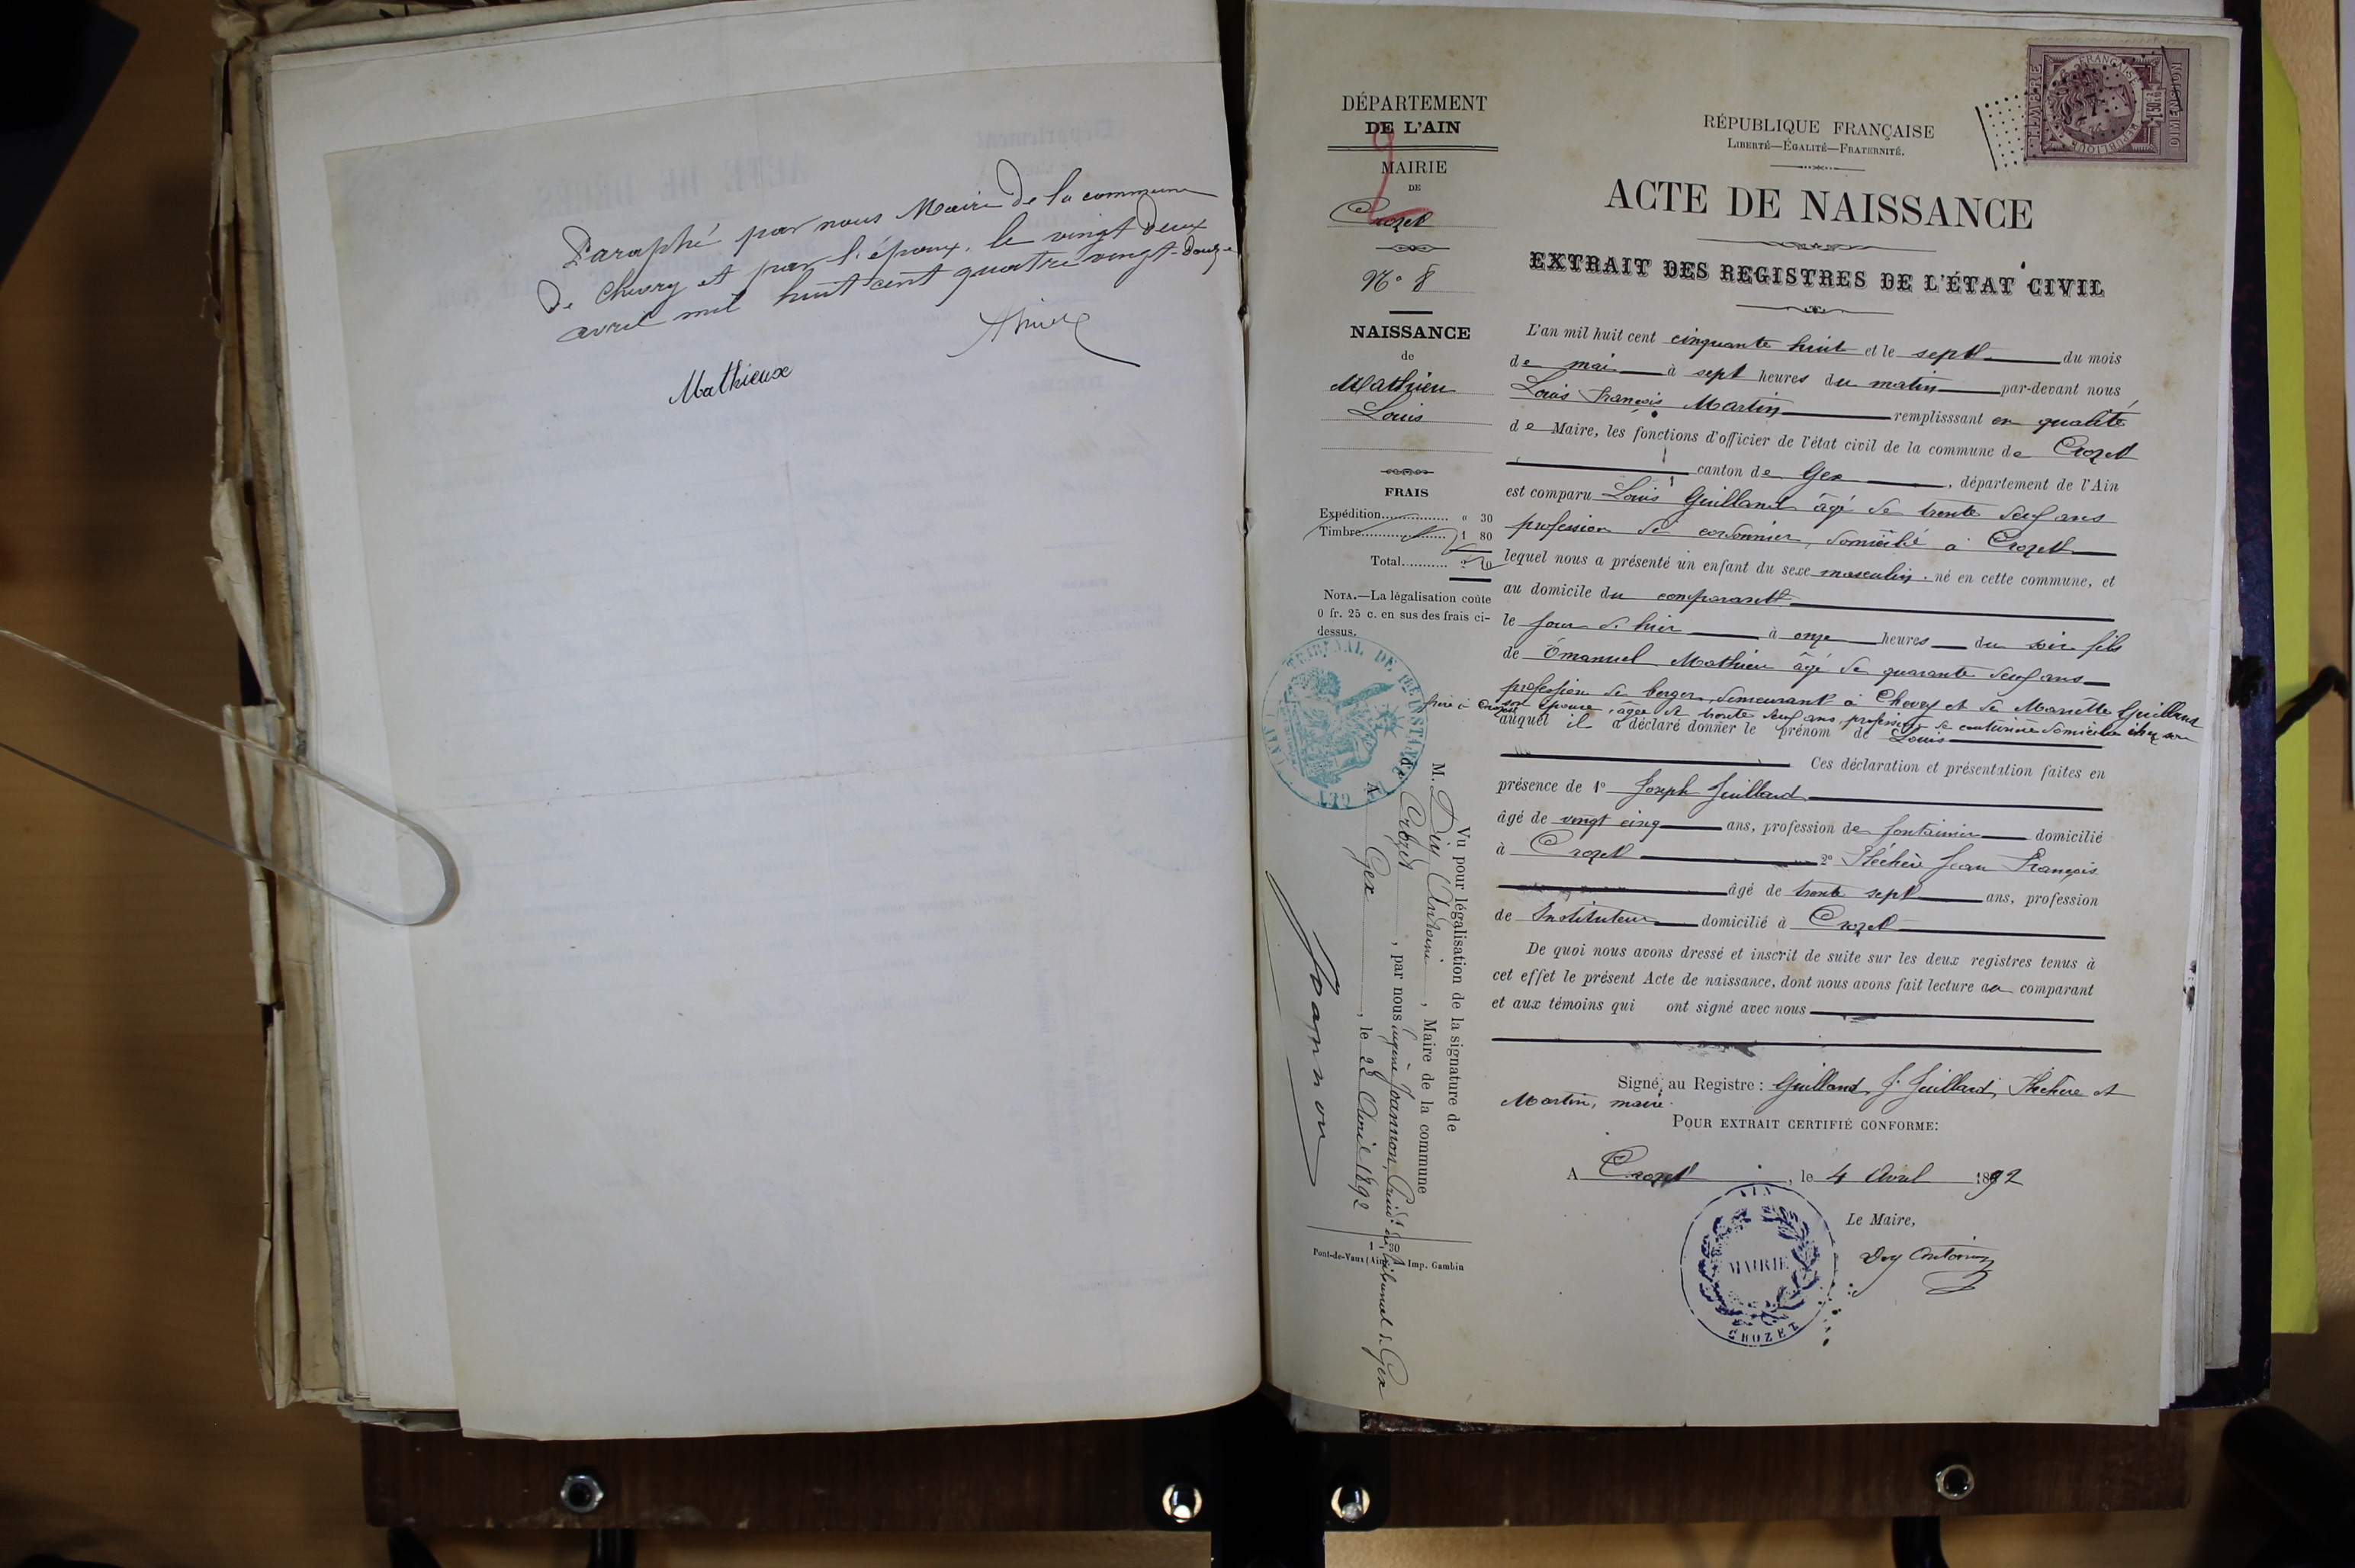 Paraphé par nous Maire de la commune
de Chevry et par l'époux, le vingt deux
avril mil huit cent quatre vingt-douze
Mathieux
DÉPARTEMENT
DE L'AIN
MAIRIE
DE
Crozet
N° 8
NAISSANCE
de
Mathieu
Louis
FRAIS
Expédition............... « 30
Timbre.................... 1 80
Total..........
NOTA.—La légalisation coûte
0 fr. 25 c. en sus des frais ci-
dessus.
TRIBUNAL DE 1RE INSTANCE DE GEX (AIN)
Vu pour légalisation de la signature de
M. Duy Antoine, Maire de la commune
de Crozet, par nous Eugène Joannon, Présidt du tribunal de Gex
A Gex, le 22 Avril 1892
Joannon
Pont-de-Vaux (Ain) Imp. Gambin
RÉPUBLIQUE FRANÇAISE
LIBERTÉ—ÉGALITÉ—FRATERNITÉ.
TIMBRE
DIMENSION
RÉPUBLIQUE FRANÇAISE
ACTE DE NAISSANCE
EXTRAIT DES REGISTRES DE L'ÉTAT CIVIL
L'an mil huit cent cinquante huit et le sept du mois
de mai à sept heures du matin par-devant nous
Louis François Martin remplisssant en qualité
de Maire, les fonctions d'officier de l'état civil de la commune de Crozet
canton de Gex, département de l'Ain
est comparu Louis Guilland âgé de trente deux ans
profession de cordonnier, domicilié à Crozet
lequel nous a présenté un enfant du sexe masculin. né en cette commune, et
au domicile du comparant
le jour d'hier à onze heures du soir fils
de Émanuel Mathieu âgé de quarante deux ans
profession de berger demeurant à Chevry et de Mariette Guilland
son épouse, âgée de trente deux ans, profession de couturière domiciliée chez son
frère à Crozet
auquel il a déclaré donner le prénom de Louis
Ces déclaration et présentation faites en
présence de 1° Joseph Juilland
âgé de vingt cinq ans, profession de fontainier domicilié
à Crozet 2° Jean François
âgé de trente sept ans, profession
de Instituteur domicilié à Crozet
De quoi nous avons dressé et inscrit de suite sur les deux registres tenus à
cet effet le présent Acte de naissance, dont nous avons fait lecture au comparant
et aux témoins qui ont signé avec nous
Signé au Registre : Guilland, J. Juilland, et
Martin, maire.
POUR EXTRAIT CERTIFIÉ CONFORME:
A Crozet, le 4 Avril 1892
Le Maire,
Duy Antoine
AIN
MAIRIE
CROZET